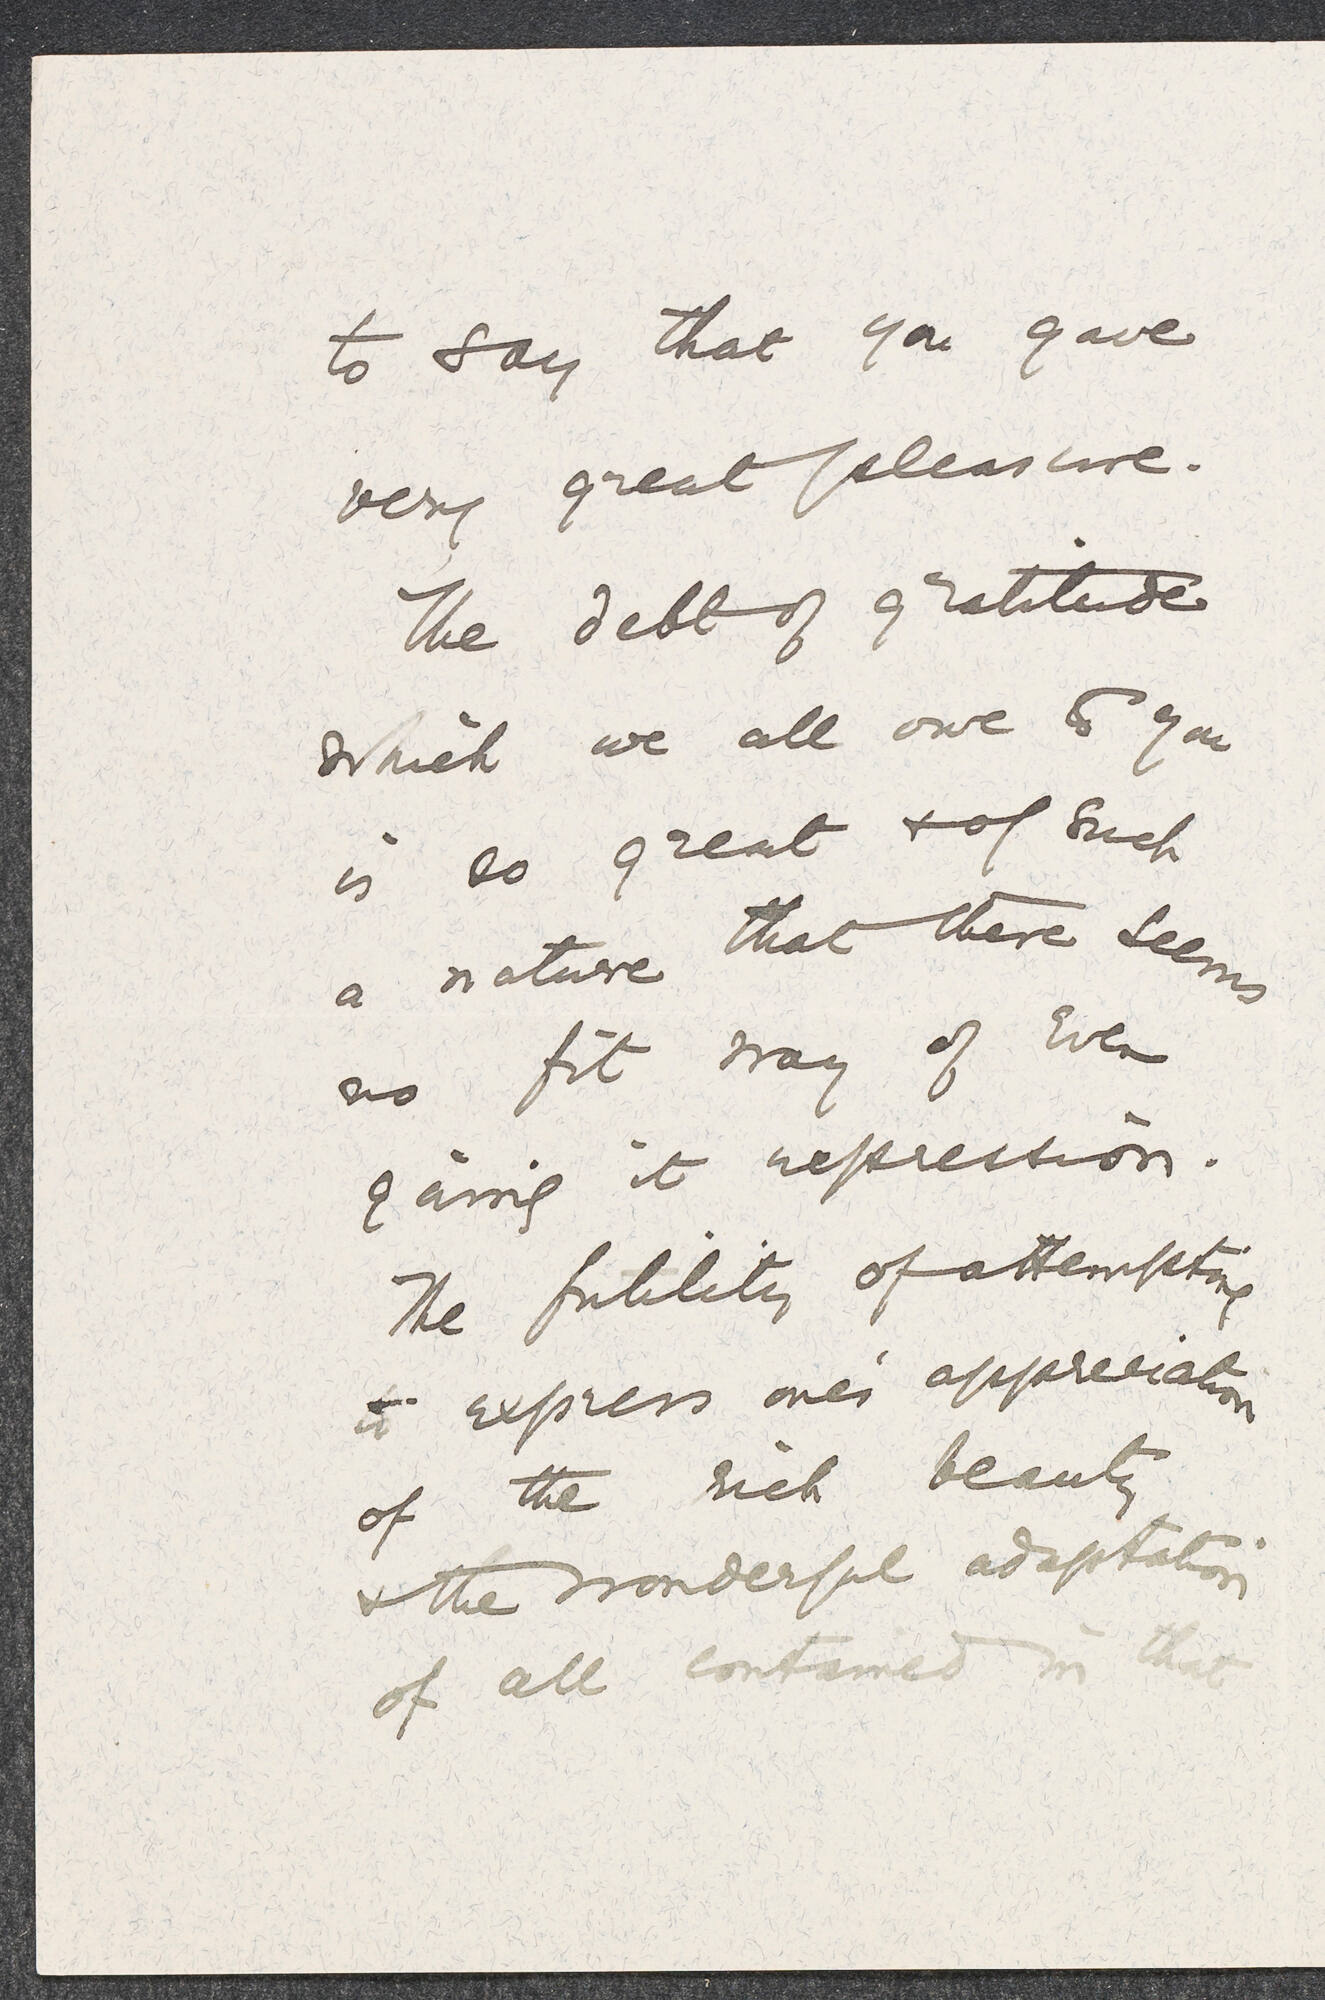 to say that you gave
very great pleasure.
The debt of gratitude
which we all owe to you
is so great + of such
a nature that there seems
no fit way of even
giving it expression.
The futility of attempting
to express one's appreciation
of the rich beauty
+ the wonderful adaptation
of all contained in that